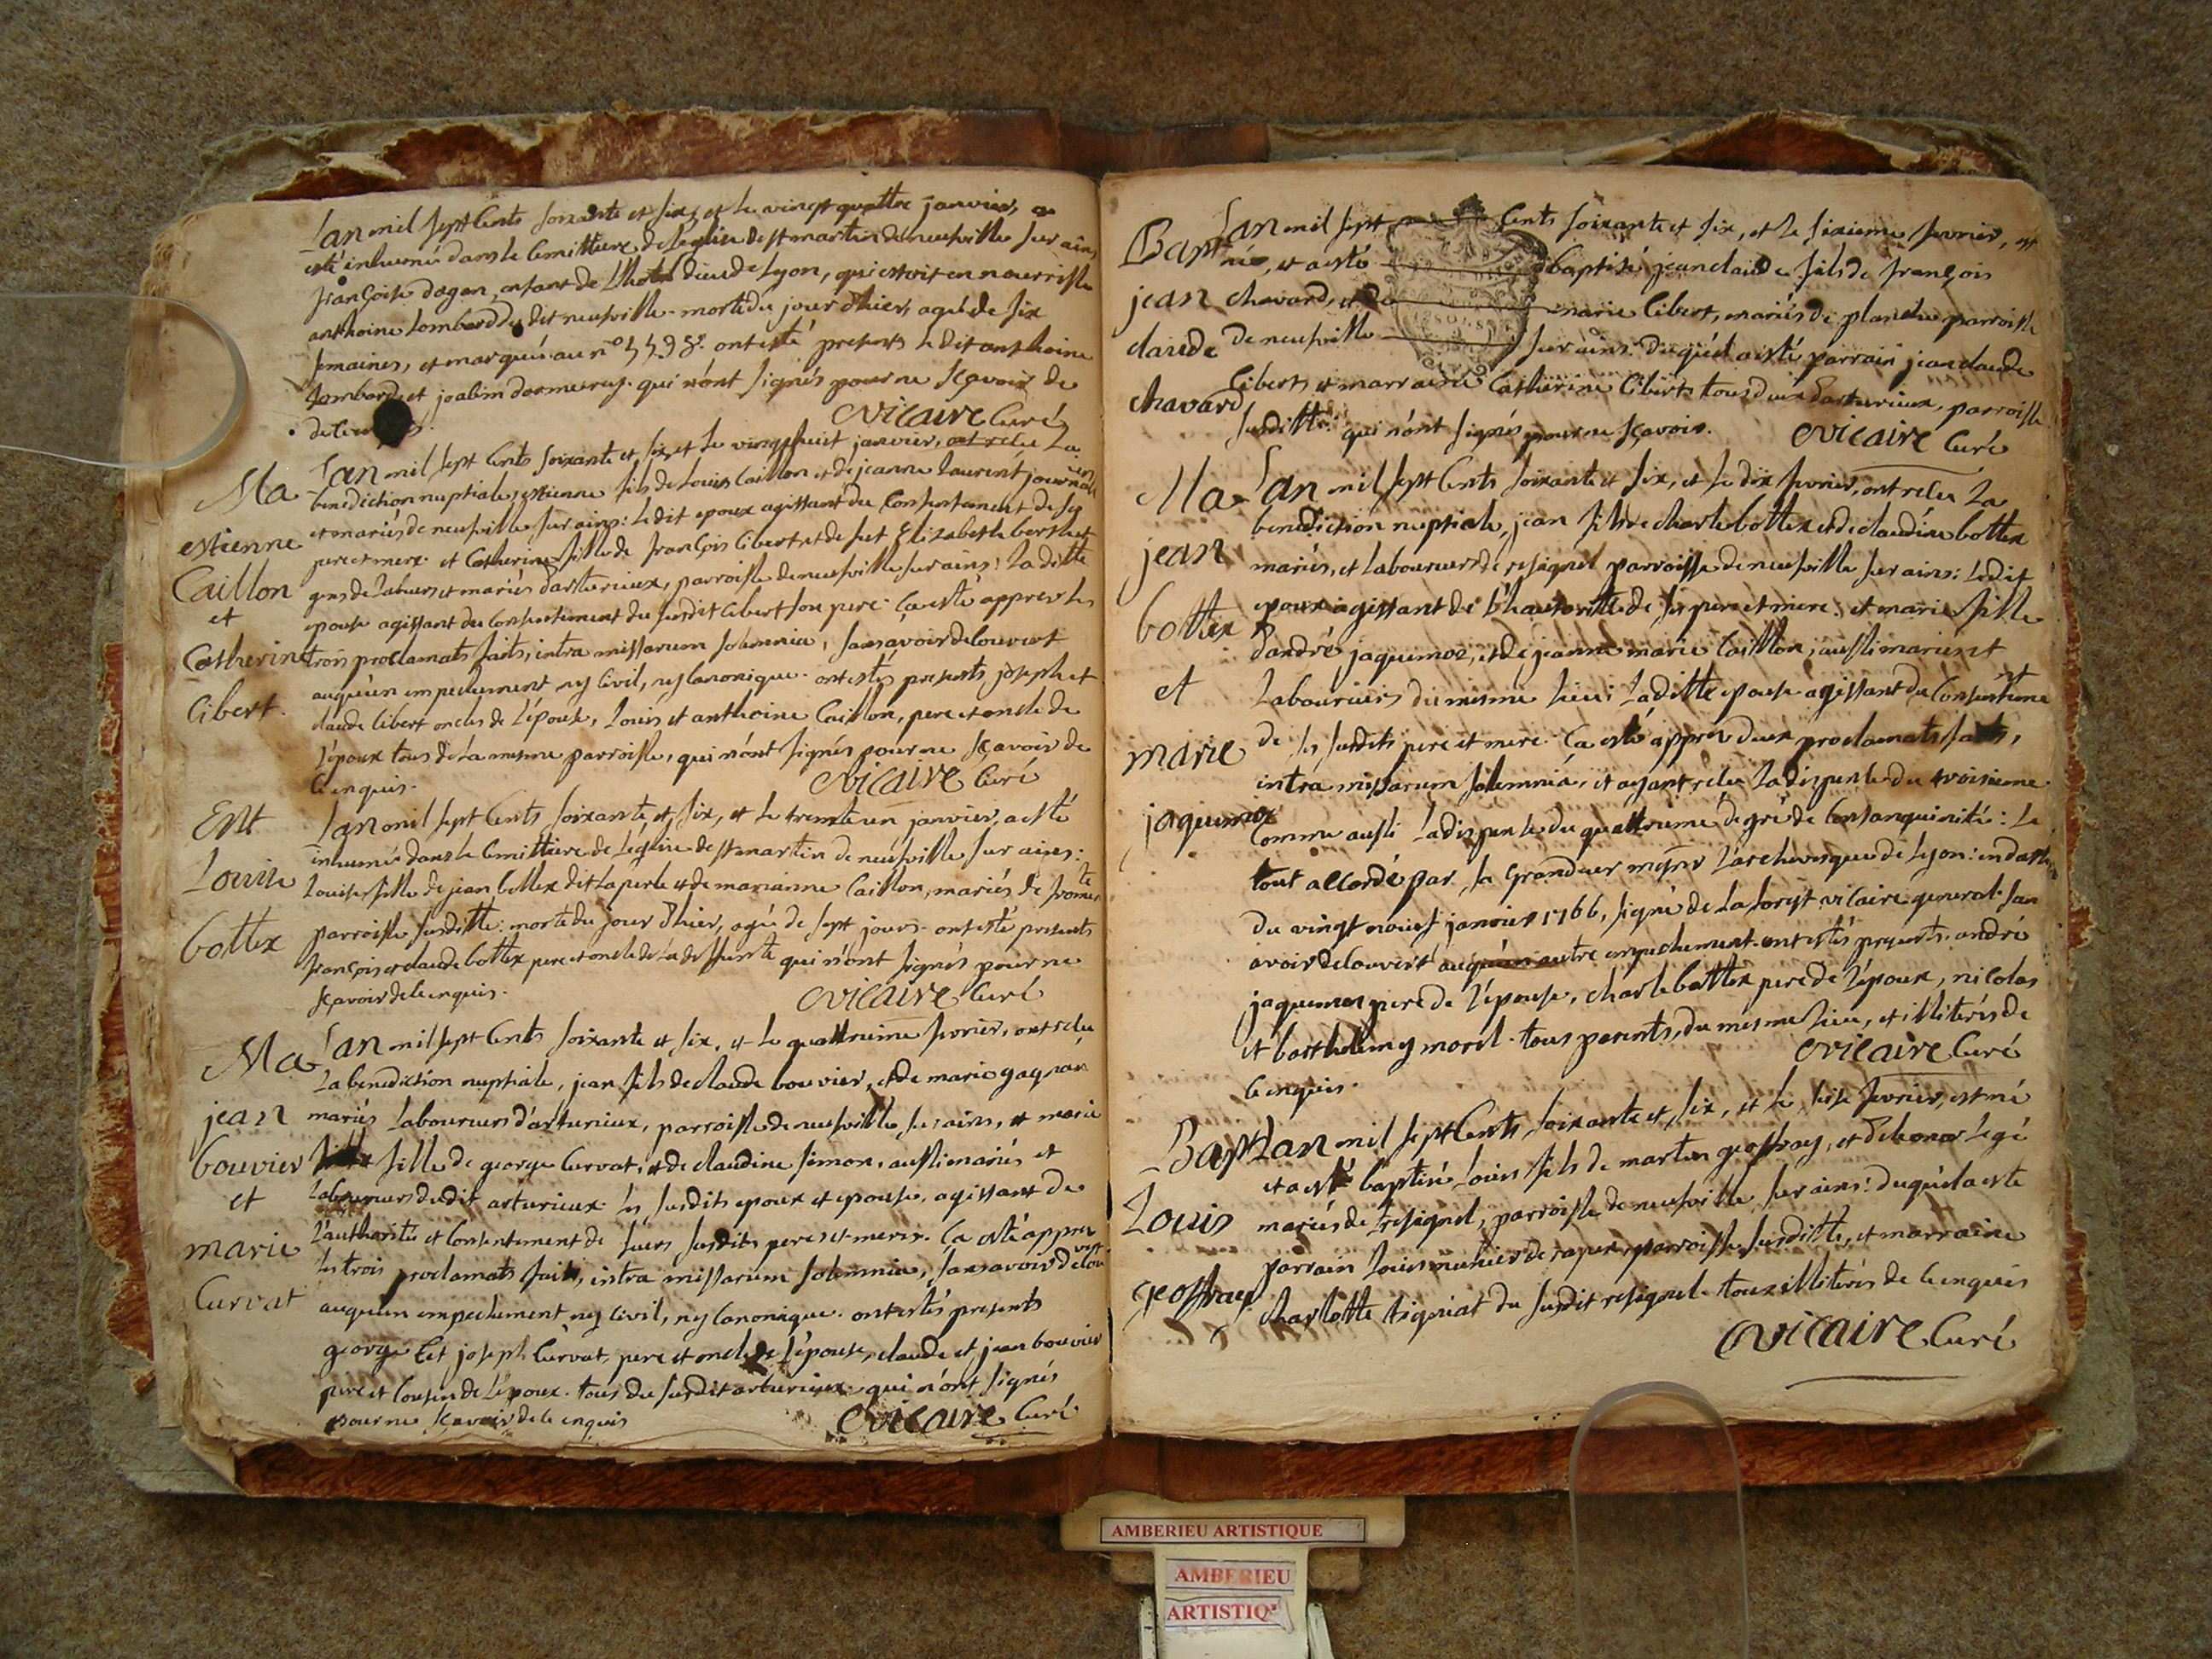 Lan mil sept Cents soixante et six, et le vingt quattre janvier, a
esté inhumé dans le Cemittiere de l'eglise de st martin de neufville sur ains
françoise dogan, enfant de L'hotel dieu de Lyon, qui estoit en nourrisse
anthoine Lombard du dit neufville. morte du jour d'hier, agée de six
semaines, et marquée au n° ontesté presents le dit anthoine
Lombard, et joabim qui n'ont signés pour ne sçavoir de
de
Vicaire Curé
Ma
estienne
Caillon
et
Catherine
Cibert.
Lan mil sept Cents soixante et six, et le vingt huit janvier, ont reçu La
benediction nuptiale, estienne fils de Louis Caillon et de jeanne Laurent
et mariés de neufville sur ains: Le dit epoux agissant du Consentement de ses
pere et mere. et Catherine fille de françois Cibert et de fut Elizabeth berthet
gens de Labeurs et mariés d'arturieux, parroisse de neufville sur ains: La ditte
epouse agissant du Consentement du susdit Cibert son pere. Ca esté appres les
trois proclamats faits, intra missarum solemnia, sans avoir decouvert
auqu'un empechement ny Civil, ny Canonique. ontestés presents joseph et
claude Cibert oncles de L'épouse, Louis et anthoine Caillon, pere et oncle de
L'époux tous de La mesme parroisse, qui n'ont signés pour ne sçavoir de
Ce enquis.
Vicaire Curé
Ent
Louise
bottex
Lan mil sept Cents soixante et six, et le trente un janvier, a esté
inhumée dans le Cemittiere de L'eglise de st martin de neufville sur ains:
Louise fille de jean bottex dit Laperle et de marianne Caillon, mariés de fromente
parroisse susditte: morte du jour d'hier, agée de sept jours. ontesté presents
françois et claude bottex pere et oncle de La deffunte qui n'ont signés pour ne
sçavoir de Ce enquis.
Vicaire Curé
Ma
jean
bouvier
et
marie
Curvat
Lan mil sept Cents soixante et six, et Le quattrieme fevrier, ont reçu
La benediction nuptiale, jean fils de claude bouvier, et de marie gagnan
mariés Laboureurs d'arturieux, parroisse de neufville sur ains, et marie
fille de george Curvat, et de claudine simon, aussi mariés et
Laboureurs dudit arturieux. Les susdits epoux et epouse, agissant de
L'authorité et Consentement de Leurs susdits peres et meres. Ca esté appres
Les trois proclamats faits, intra missarum solemnia, sans avoir decouvert
auqu'un empechement ny Civil, ny Canonique. ontestés presents
george et joseph Curvat, pere et oncle de L'épouse, claude et jean bouvier
pere et Cousin de L'époux. tous du susdit arturieux. qui n'ont signés
pour ne sçavoir de Ce enquis
Vicaire Curé
Bapt
jean
claude
chavard
Lan mil sept Cents soixante et six, et le sixieme fevrier, est
né, et a esté baptisé jean claude fils de françois
chavard, et de marie Cibert, mariés de planche parroisse
de neufville sur ains. duquel a esté parrain jean claude
Cibert, et marraine Catherine Cibert tous deux d'arturieux, parroisse
susditte. qui n'ont signés pour ne sçavoir.
Vicaire Curé
Ma
jean
bottex
et
marie
jaquemoz
Lan mil sept Cents soixante et six, et Le dix fevrier, ont reçu La
benediction nuptiale, jean fils de charle bottex et de claudine bottex
mariés, et Laboureurs de resignel parroisse de neufville sur ains: Le dit
epoux agissant de L'hautorité de ses pere et mere: et marie fille
d'andré jaquemoz, et de jeanne marie Caillon, aussi mariés et
Laboureurs du mesme Lieu: La ditte epouse agissant du Consentement
de ses susdits pere et mere. Ca esté appres deux proclamats faits,
intra missarum solemnia, et ayant reçu La dispense du troisieme
Comme aussi La dispense du quattrieme degré de Consanguinité: Le
tout accordé par sa Grandeur L'archevesque de Lyon: en datte
du vingt neuf janvier 1766, signé de La forest vicaire general. san
avoir decouvert auqu'un autre empechement. ontestés presents. andré
jaquemoz pere de L'épouse, charle bottex pere de L'époux, nicolas
et barthelemy morel. tous parents, du mesme Lieu, et illiterés de
Ce enquis.
Vicaire Curé
Bapt
Louis
geoffray
Lan mil sept Cents soixante et six, et le seize fevrier, est né
et a esté baptisé Louis fils de martin geoffray, et d'eleonor Legé
mariés de resignel, parroisse de neufville sur ains: duquel a esté
parrain Louis munier de rapex, parroisse susditte, et marraine
charlotte tigniat du susdit resignel. tous illiterés de Ce enquis
Vicaire Curé
AMBERIEU ARTISTIQUE
AMBERIEU
ARTISTIQ